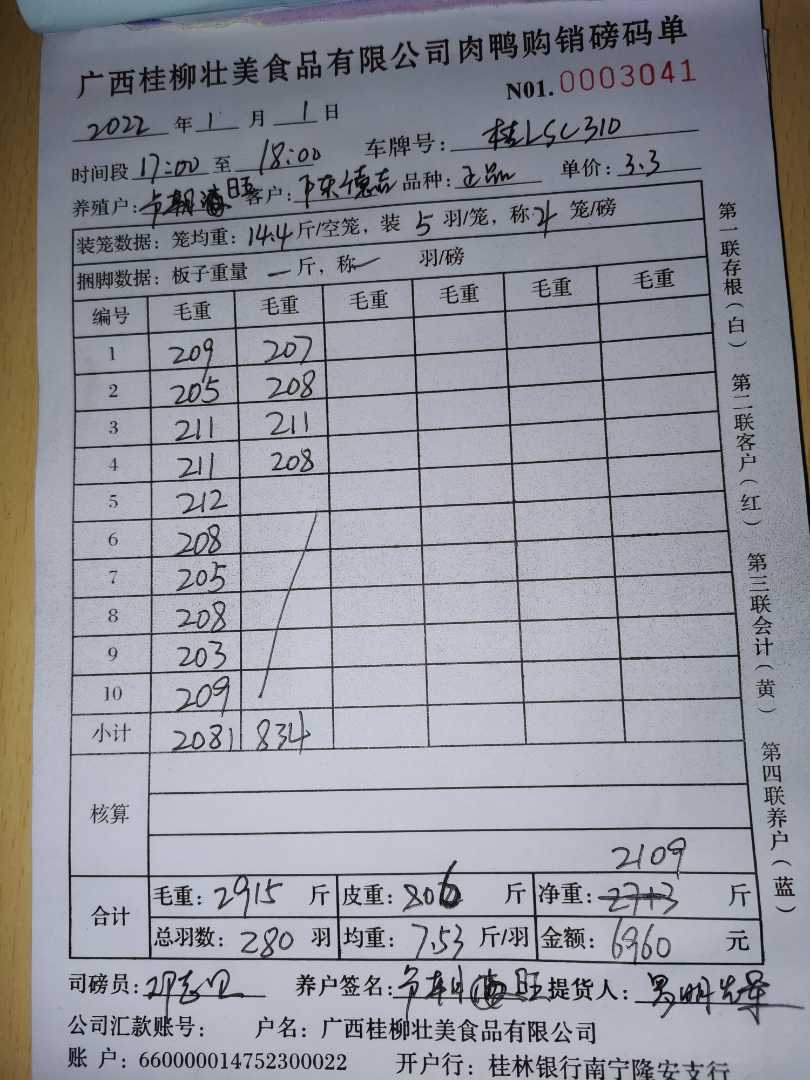 广西桂柳壮美食品有限公司肉鸭购销磅码单
N01. 0003041
2022 年 1 月 1 日
时间段 17:00 至 18:00 车牌号: 桂LSC310
养殖户: 旺 客户: 陈德吉 品种: 正品 单价: 3.3
装笼数据: 笼均重: 14.4 斤/空笼, 装 5 羽/笼, 称 4 笼/磅
捆脚数据: 板子重量 一 斤, 称 一 羽/磅
编号 毛重 毛重 毛重 毛重 毛重 毛重
1 209 207
2 205 208
3 211 211
4 211 208
5 212
6 208
7 205
8 208
9 203
10 209
小计 2081 834
核算
2109
合计 毛重: 2915 斤 皮重: 806 斤 净重: 2713 斤
总羽数: 280 羽 均重: 7.53 斤/羽 金额: 6960 元
司磅员: 养户签名: 旺 提货人:
公司汇款账号: 户名: 广西桂柳壮美食品有限公司
账 户: 660000014752300022 开户行: 桂林银行南宁隆安支行
第一联存根(白) 第二联客户(红) 第三联会计(黄) 第四联养户(蓝)